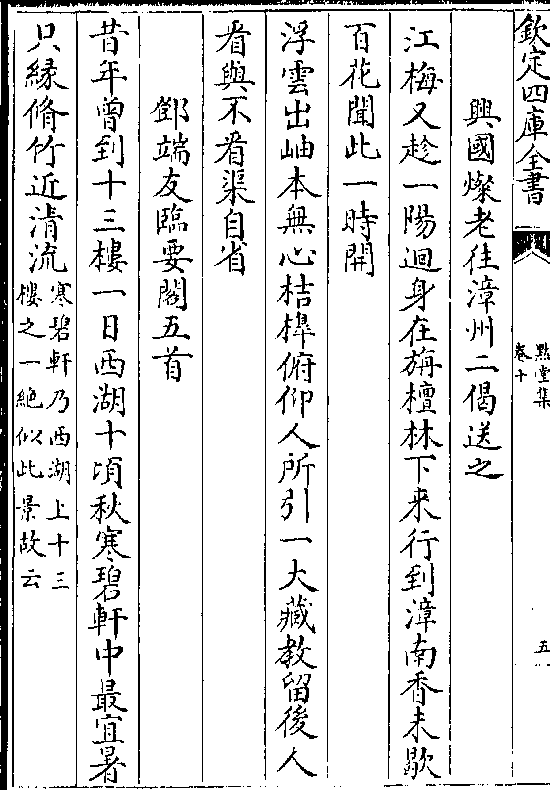 欽定四庫全書
點堂集
卷十
五
興國燦老往漳州二偈送之
江梅又趁一陽迴身在旃檀林下来行到漳南香未歇
百花聞此一時開
浮雲出岫本無心桔橰俯仰人所引一大藏教留後人
看與不看渠自省
鄧端友臨要閣五首
昔年曾到十三樓一日西湖十頃秋寒碧軒中最宜暑
只縁脩竹近清流寒碧軒乃西湖上十三
樓之一絶似此景故云